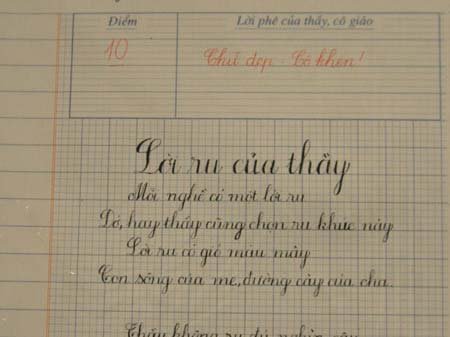 Điểm
Lời phê của thầy, cô giáo
10
Chữ đẹp. Cô khen!
Lời ru của thầy
Mỗi nghề có một lời ru
Dở, hay thầy cũng chọn ru khúc này
Lời ru có gió màu mây
Con sông của mẹ, đường cày của cha.
Thầy không ru đủ nghìn câu